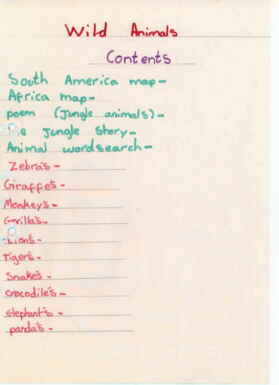 Wild Animals
Contents
South America map-
Africa map-
poem (Jungle animals)-
The Jungle story-
Animal wordsearch-
Zebra's-
Giraffe's-
Monkey's-
Gorilla's-
Lions-
Tigers-
Snakes-
crocodile's-
elephant's-
panda's-